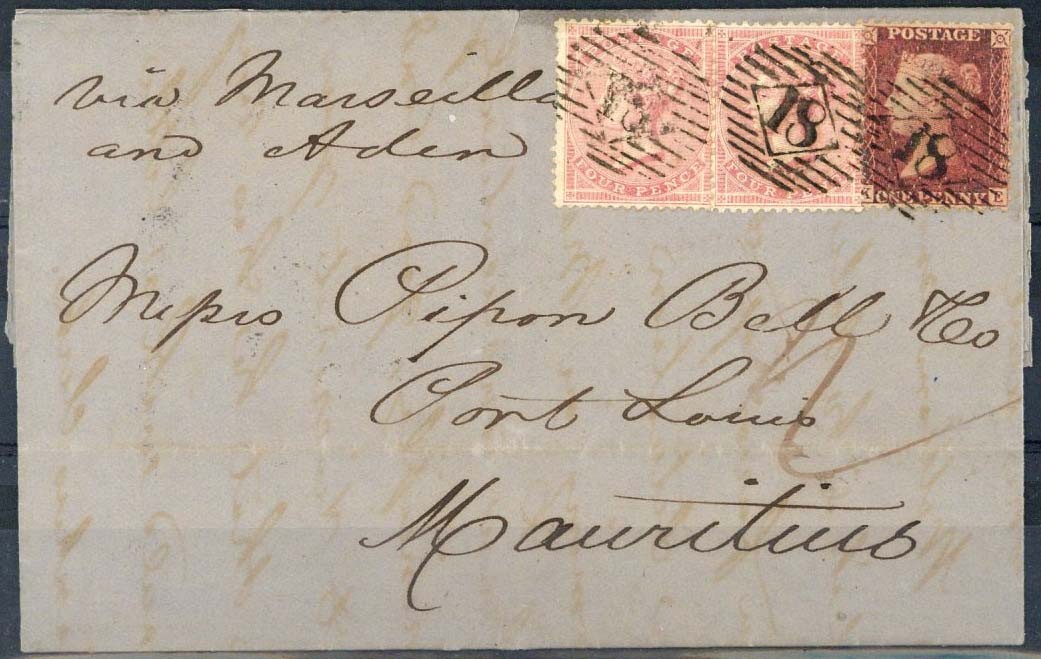 via Marseilles
and Aden
POSTAGE
FOUR PENCE
POSTAGE
FOUR PENCE
POSTAGE
ONE PENNY
E
18
18
18
Messrs Pipon Bell & Co
Port Louis
Mauritius